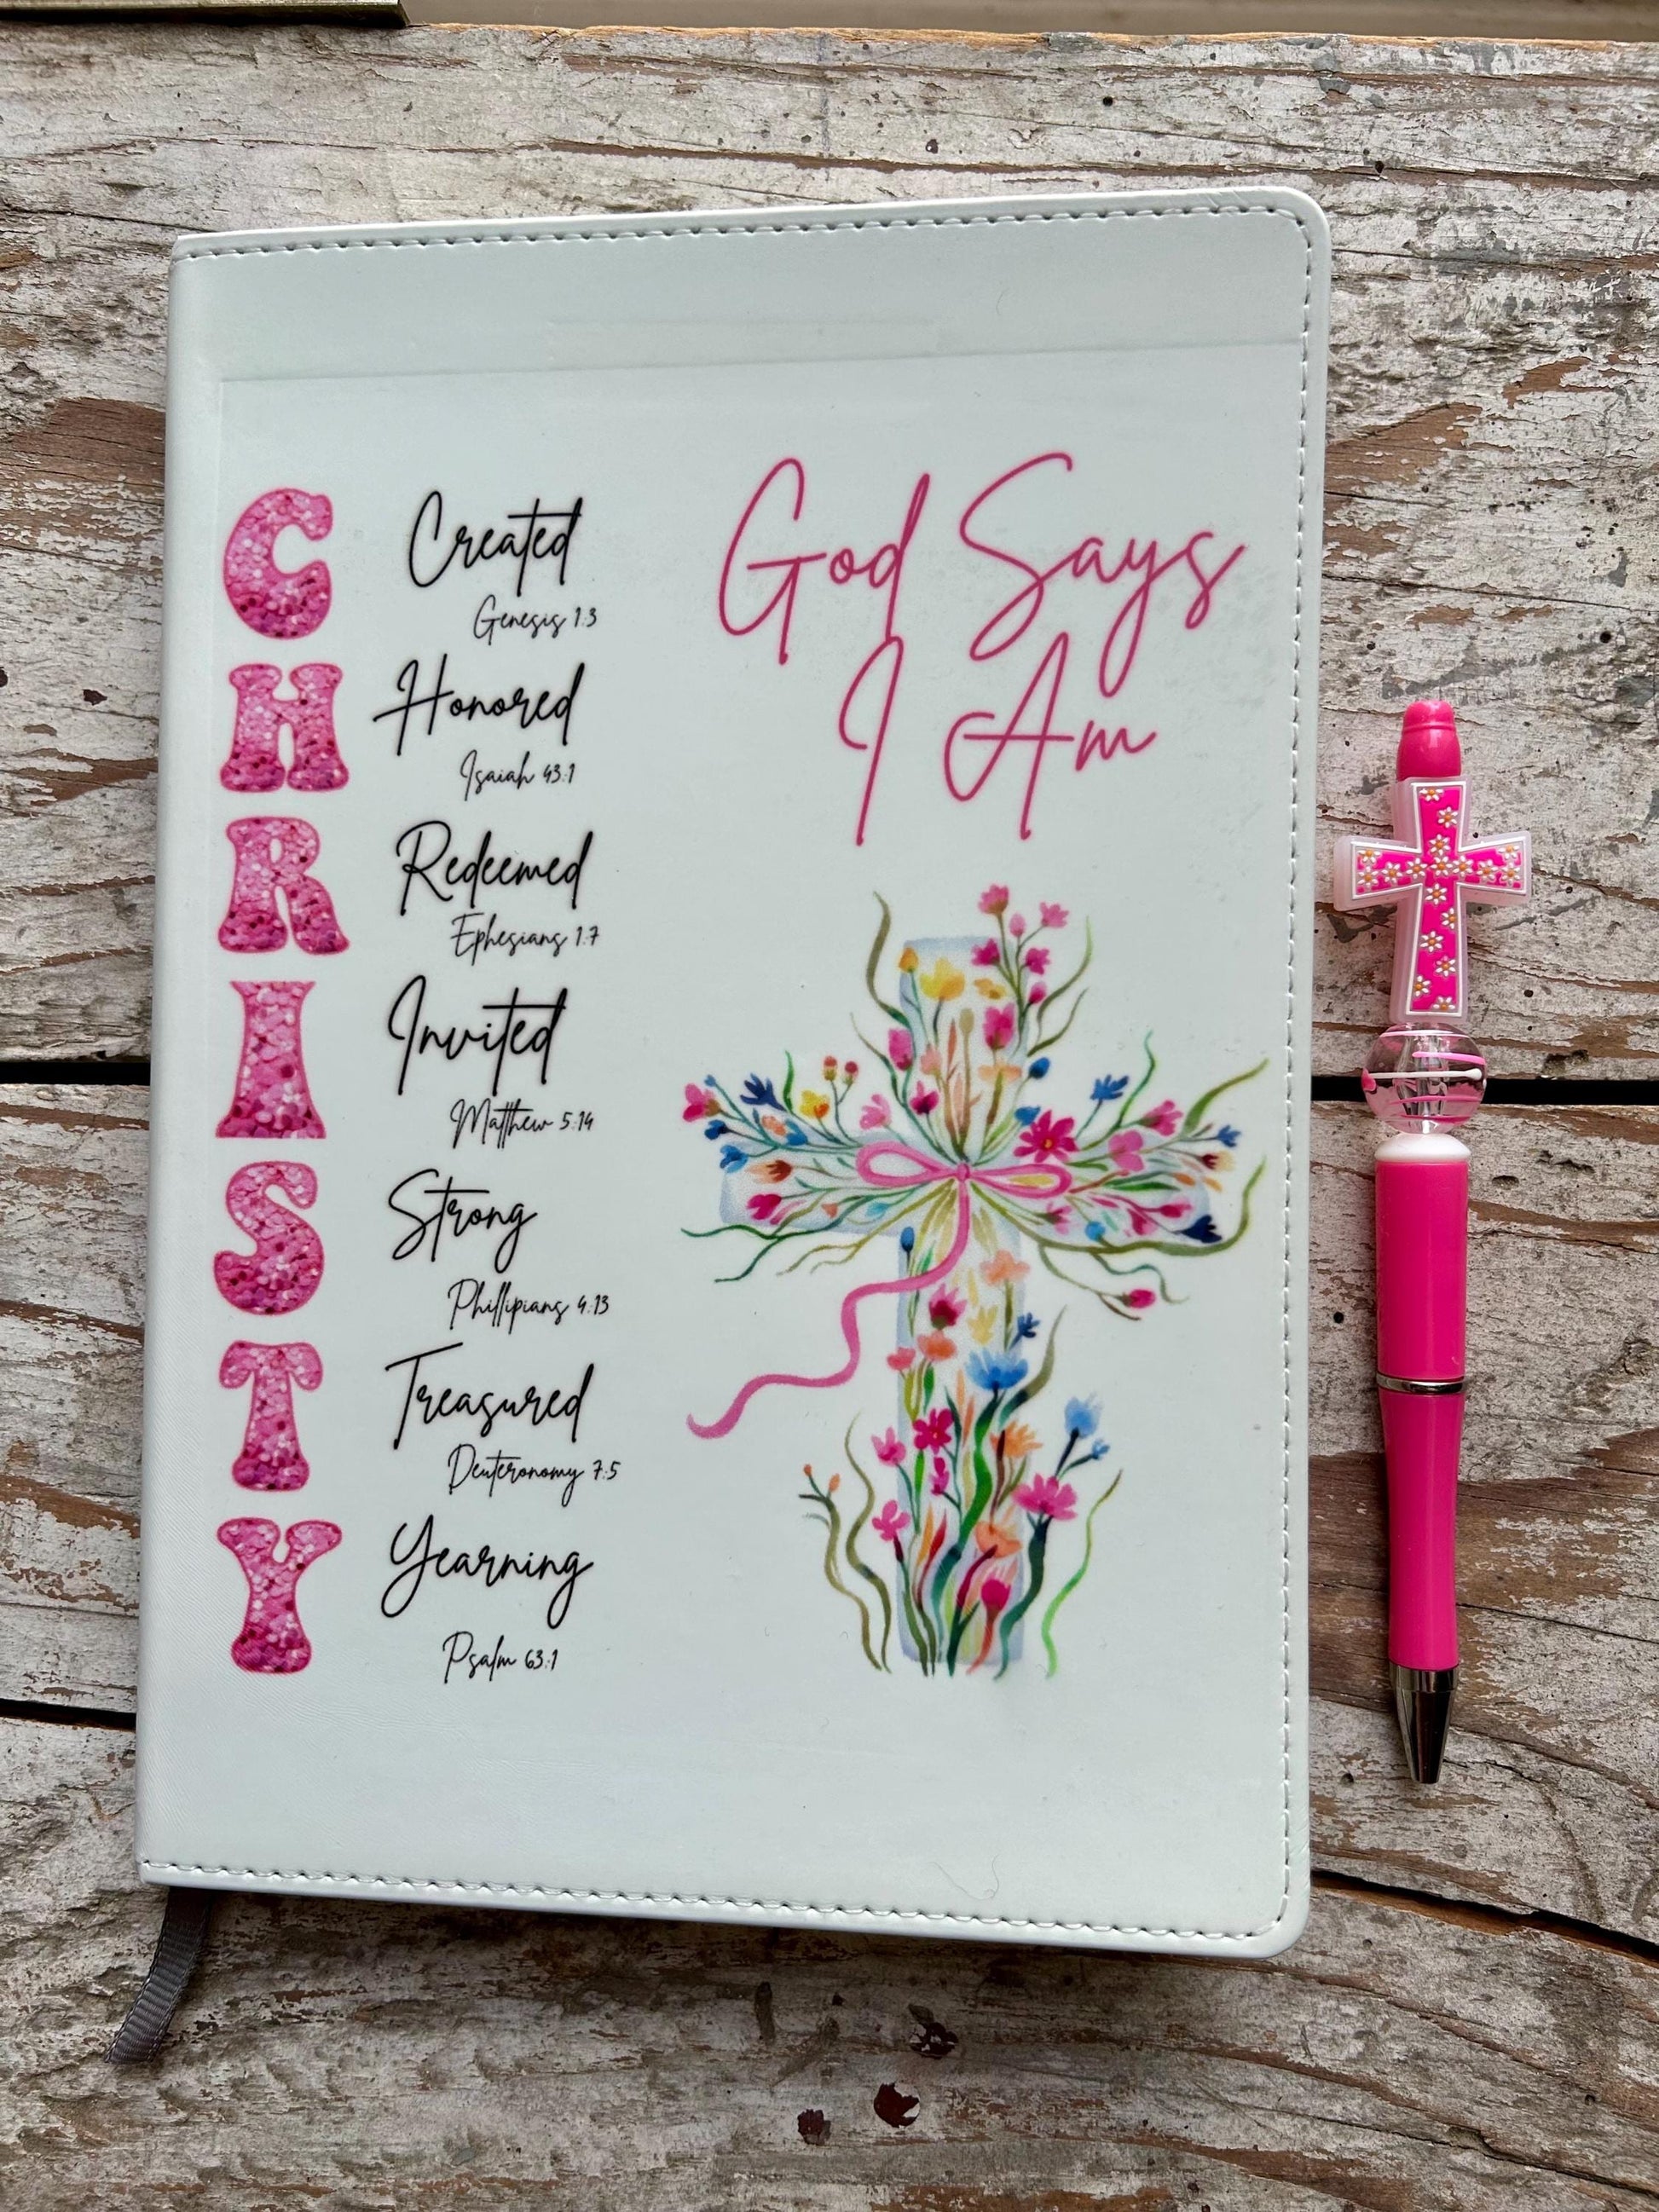 God Says
I Am
C Created
Genesis 1:3
H Honored
Isaiah 43:1
R Redeemed
Ephesians 1:7
I Invited
Matthew 5:14
S Strong
Phillipians 4:13
T Treasured
Deuteronomy 7:5
Y Yearning
Psalm 63:1